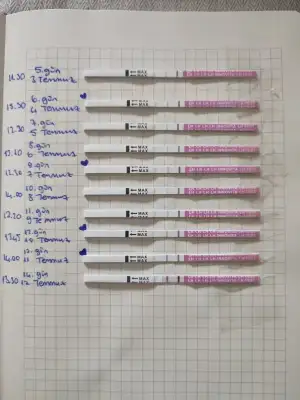 5.gün
11.30 3 Temmuz
6.gün
13.30 4 Temmuz
7.gün
12.30 5 Temmuz
8.gün
6 Temmuz
9.gün
7 Temmuz
10.gün
14.00 8 Temmuz
11.gün
12.30 9 Temmuz
12.gün
10 Temmuz
13.gün
14.00 11 Temmuz
14.gün
13.30 12 Temmuz
MAX
MAX
MAX
MAX
MAX
MAX
MAX
MAX
MAX
MAX